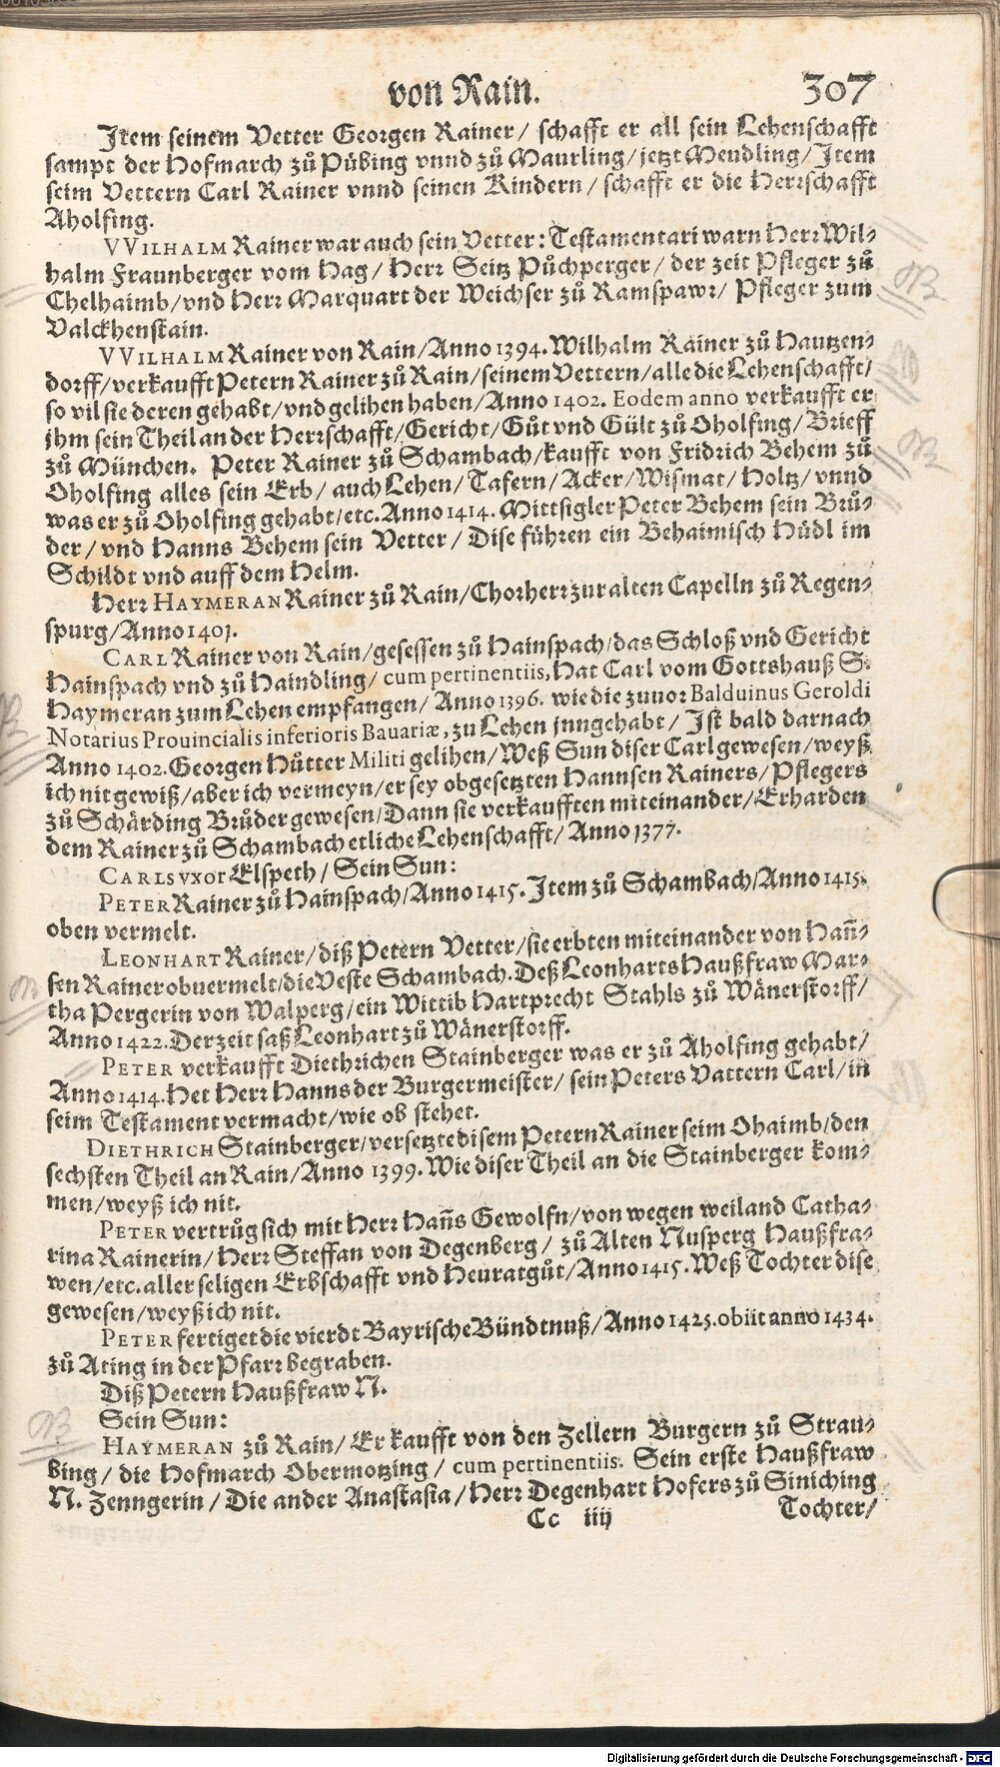 von Rain. 307
Item seinem Vetter Georgen Rainer/ schafft er all sein Lehenschafft
sampt der Hofmarch zů Pübing vnnd zů Maurling/jetzt Meudling/Item
seim Vettern Carl Rainer vnnd seinen Kindern/ schafft er die Herrschafft
Aholfing.
VVILHALM Rainer war auch sein Vetter: Testamentari warn Herr Wil-
halm Fraunberger vom Hag/ Herr Seitz Půchperger/ der zeit Pfleger zů
Chelhaimb/vnd Herr Marquart der Weichser zů Ramspawr/ Pfleger zum
Valckhenstain.
VVILHALM Rainer von Rain/Anno 1394. Wilhalm Rainer zů Hautzen-
dorff/verkaufft Petern Rainer zů Rain/seinem Vettern/alle die Lehenschafft/
so vil sie deren gehabt/vnd gelihen haben/Anno 1402. Eodem anno verkaufft er
jhm sein Theil an der Herrschafft/Gericht/Gůt vnd Gült zů Oholfing/Brieff
zů München. Peter Rainer zů Schambach/kaufft von Fridrich Behem zů
Oholfing alles sein Erb/ auch Lehen/ Tafern/ Acker/ Wismat/ Holtz/ vnnd
was er zů Oholfing gehabt/etc. Anno 1414. Mittsigler Peter Behem sein Brů-
der/ vnd Hanns Behem sein Vetter/ Dise führen ein Behaimisch Hüdl im
Schildt vnd auff dem Helm.
Herr HAYMERAN Rainer zů Rain/Chorherr zur alten Capelln zů Regen-
spurg/Anno 1401.
CARL Rainer von Rain/gesessen zů Hainspach/das Schloß vnd Gericht
Hainspach vnd zů Haindling/ cum pertinentiis, Hat Carl vom Gottshauß S.
Haymeran zum Lehen empfangen/ Anno 1396. wie die zuuor Balduinus Geroldi
Notarius Prouincialis inferioris Bauariæ, zu Lehen jnngehabt/ Ist bald darnach
Anno 1402. Georgen Hütter Militi gelihen/ Weß Sun diser Carl gewesen/weyß
ich nit gewiß/aber ich vermeyn/er sey obgesetzten Hannsen Rainers/Pflegers
zů Schärding Brůder gewesen/Dann sie verkaufften miteinander/Erharden
dem Rainer zů Schambach etliche Lehenschafft/ Anno 1377.
CARLS vxor Elspeth/ Sein Sun:
PETER Rainer zů Hainspach/Anno 1415. Item zů Schambach/Anno 1415.
oben vermelt.
LEONHART Rainer/diß Petern Vetter/sie erbten miteinander von Hañ-
sen Rainer obuermelt/die Veste Schambach. Deß Leonharts Haußfraw Mar-
tha Pergerin von Walperg/ein Wittib Hartprecht Stahls zů Wänerstorff/
Anno 1422. Der zeit saß Leonhart zů Wänerstorff.
PETER verkaufft Diethrichen Stainberger was er zů Aholfing gehabt/
Anno 1414. Het Herr Hanns der Burgermeister/ sein Peters Vattern Carl/in
seim Testament vermacht/wie ob stehet.
DIETHRICH Stainberger/versetzte disem Petern Rainer seim Ohaimb/den
sechsten Theil an Rain/Anno 1399. Wie diser Theil an die Stainberger kom-
men/weyß ich nit.
PETER vertrůg sich mit Herr Hañs Gewolfn/von wegen weiland Catha-
rina Rainerin/Herr Steffan von Degenberg/ zů Alten Nusperg Haußfra-
wen/etc. aller seligen Erbschafft vnd Heuratgůt/Anno 1415. Weß Tochter dise
gewesen/weyß ich nit.
PETER fertiget die vierdt Bayrische Bündtnuß/Anno 1425. obiit anno 1434.
zů Ating in der Pfarr begraben.
Diß Petern Haußfraw N.
Sein Sun:
HAYMERAN zů Rain/ Er kaufft von den Zellern Burgern zů Strau-
bing/ die Hofmarch Obermotzing/ cum pertinentiis. Sein erste Haußfraw
N. Zenngerin/ Die ander Anastasia/Herr Degenhart Hofers zů Siniching
Cc iiij Tochter/
NB
NB
NB
NB
Digitalisierung gefördert durch die Deutsche Forschungsgemeinschaft - DFG